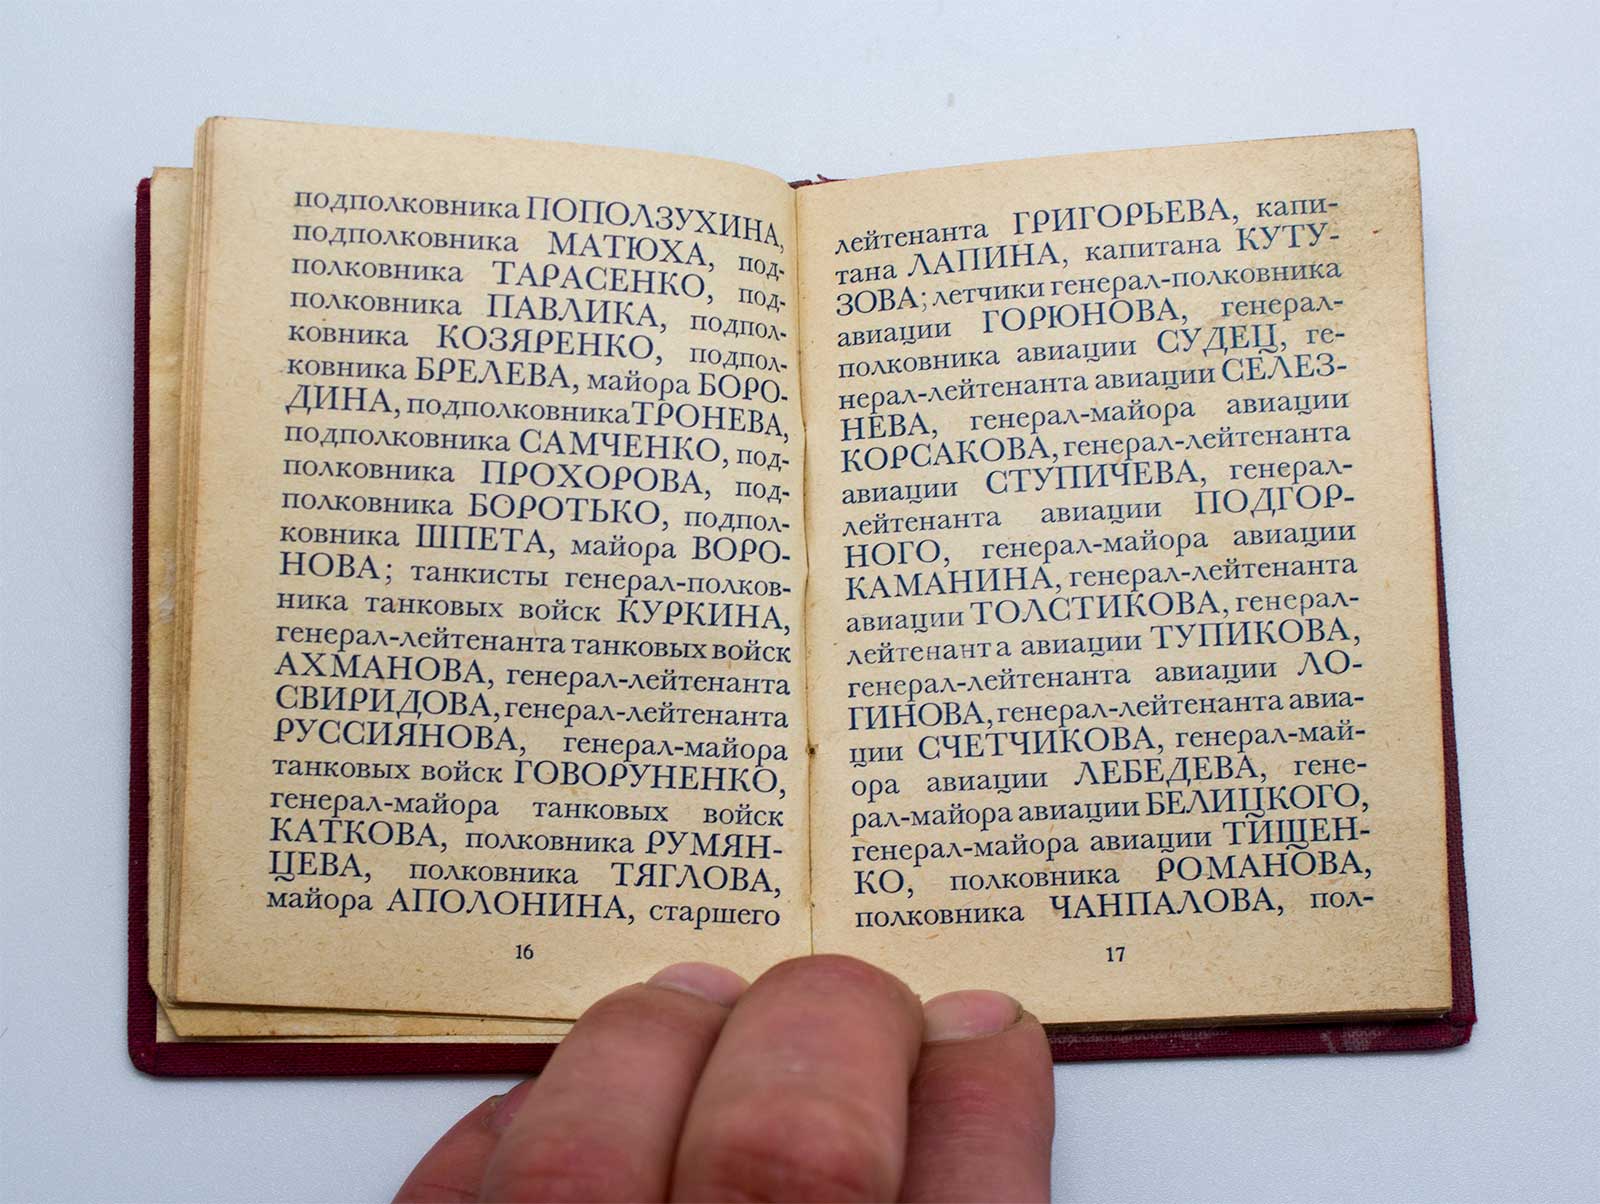 подполковника ПОПОЛЗУХИНА,
подполковника МАТЮХА, под-
полковника ТАРАСЕНКО, под-
полковника ПАВЛИКА, подпол-
ковника КОЗЯРЕНКО, подпол-
ковника БРЕЛЕВА, майора БОРО-
ДИНА, подполковника ТРОНЕВА,
подполковника САМЧЕНКО, под-
полковника ПРОХОРОВА, под-
полковника БОРОТЬКО, подпол-
ковника ШПЕТА, майора ВОРО-
НОВА; танкисты генерал-полков-
ника танковых войск КУРКИНА,
генерал-лейтенанта танковых войск
АХМАНОВА, генерал-лейтенанта
СВИРИДОВА, генерал-лейтенанта
РУССИЯНОВА, генерал-майора
танковых войск ГОВОРУНЕНКО,
генерал-майора танковых войск
КАТКОВА, полковника РУМЯН-
ЦЕВА, полковника ТЯГЛОВА,
майора АПОЛОНИНА, старшего
16
лейтенанта ГРИГОРЬЕВА, капи-
тана ЛАПИНА, капитана КУТУ-
ЗОВА; летчики генерал-полковника
авиации ГОРЮНОВА, генерал-
полковника авиации СУДЕЦ, ге-
нерал-лейтенанта авиации СЕЛЕЗ-
НЕВА, генерал-майора авиации
КОРСАКОВА, генерал-лейтенанта
авиации СТУПИЧЕВА, генерал-
лейтенанта авиации ПОДГОР-
НОГО, генерал-майора авиации
КАМАНИНА, генерал-лейтенанта
авиации ТОЛСТИКОВА, генерал-
лейтенанта авиации ТУПИКОВА,
генерал-лейтенанта авиации ЛО-
ГИНОВА, генерал-лейтенанта авиа-
ции СЧЕТЧИКОВА, генерал-май-
ора авиации ЛЕБЕДЕВА, гене-
рал-майора авиации БЕЛИЦКОГО,
генерал-майора авиации ТИЩЕН-
КО, полковника РОМАНОВА,
полковника ЧАНПАЛОВА, пол-
17